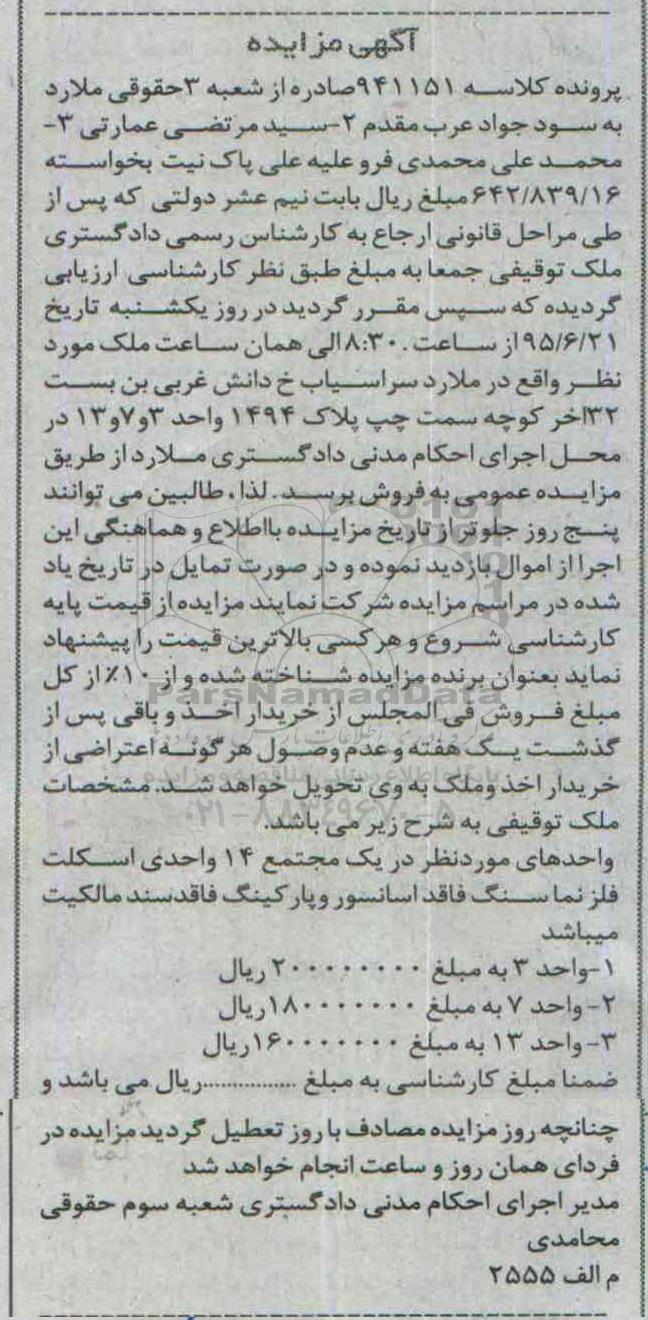 آگهی مزایده
پرونده کلاسه ۹۴۱۱۵۱صادره از شعبه ۳حقوقی ملارد
به سود جواد عرب مقدم ۲-سید مرتضی عمارتی ۳-
محمد علی محمدی فرو علیه علی پاک نیت بخواسته
۶۴۲/۸۳۹/۱۶مبلغ ریال بابت نیم عشر دولتی که پس از
طی مراحل قانونی ارجاع به کارشناس رسمی دادگستری
ملک توقیفی جمعا به مبلغ طبق نظر کارشناسی ارزیابی
گردیده که سپس مقرر گردید در روز یکشنبه تاریخ
۹۵/۶/۲۱از ساعت ۸:۳۰الی همان ساعت ملک مورد
نظر واقع در ملارد سراسیاب خ دانش غربی بن بست
۳۲اخر کوچه سمت چپ پلاک ۱۴۹۴ واحد ۳و۷و۱۳ در
محل اجرای احکام مدنی دادگستری ملارد از طریق
مزایده عمومی به فروش برسد. لذا، طالبین می توانند
پنج روز جلوتر از تاریخ مزایده بااطلاع و هماهنگی این
اجرا از اموال بازدید نموده و در صورت تمایل در تاریخ یاد
شده در مراسم مزایده شرکت نمایند مزایده از قیمت پایه
کارشناسی شروع و هرکسی بالاترین قیمت را پیشنهاد
نماید بعنوان برنده مزایده شناخته شده و از ۱۰٪ از کل
مبلغ فروش فی المجلس از خریدار اخذ و باقی پس از
گذشت یک هفته و عدم وصول هرگونه اعتراضی از
خریدار اخذ وملک به وی تحویل خواهد شد. مشخصات
ملک توقیفی به شرح زیر می باشد.
واحدهای موردنظر در یک مجتمع ۱۴ واحدی اسکلت
فلز نما سنگ فاقد اسانسور وپارکینگ فاقدسند مالکیت
میباشد
۱-واحد ۳ به مبلغ ۲۰۰۰۰۰۰۰۰ ریال
۲- واحد ۷ به مبلغ ۱۸۰۰۰۰۰۰۰ریال
۳- واحد ۱۳ به مبلغ ۱۶۰۰۰۰۰۰۰ریال
ضمنا مبلغ کارشناسی به مبلغ ................ریال می باشد و
چنانچه روز مزایده مصادف با روز تعطیل گردید مزایده در
فردای همان روز و ساعت انجام خواهد شد
مدیر اجرای احکام مدنی دادگستری شعبه سوم حقوقی
محامدی
م الف ۲۵۵۵
ParsNamadData
۰۲۱-۸۸۳۴۹۶۷۰-۵